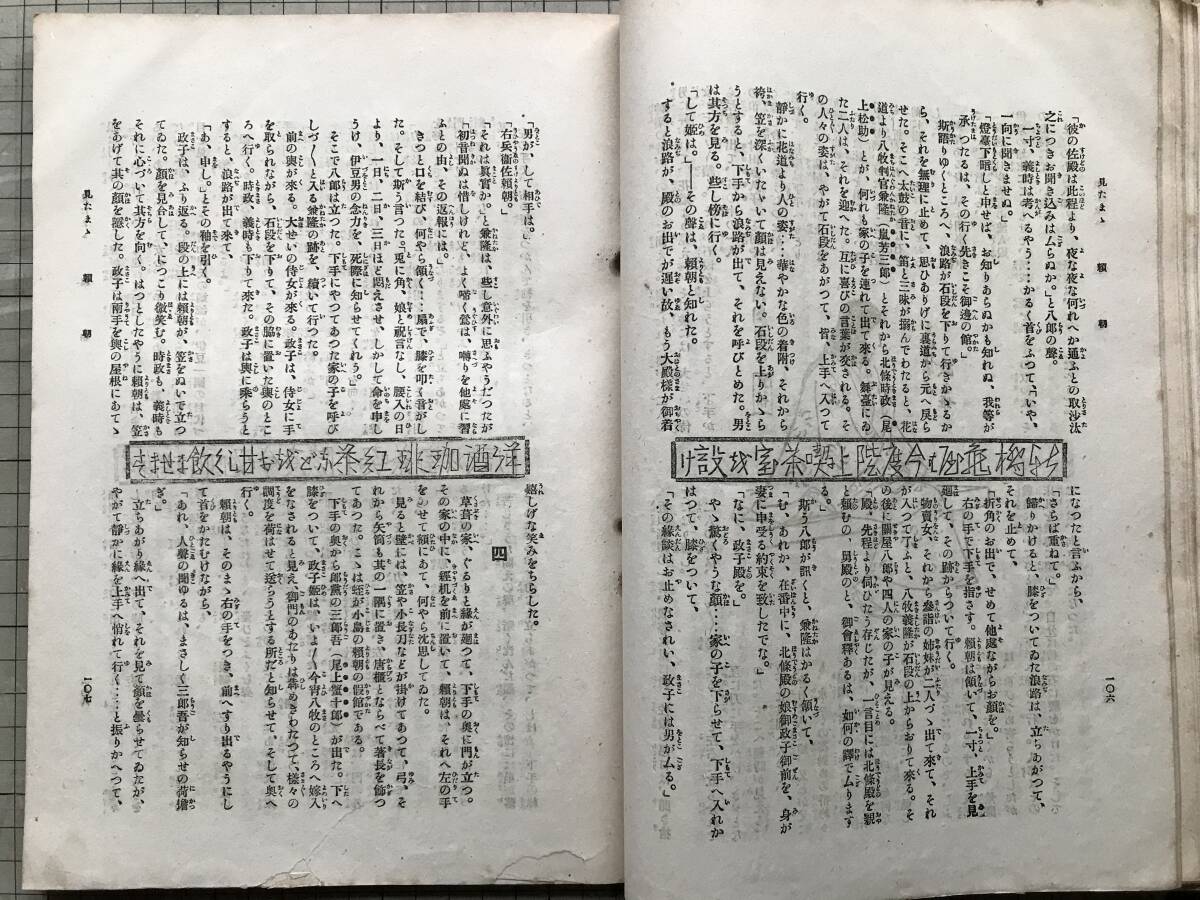 見たまゝ 頼朝
「彼の佐殿は此程より、夜な夜な何れへか通ふとの取沙汰
之につきお聞き込みは厶らぬか。」と八郎の聲。
一寸、義時は考へるやう‥‥かるく首をふつて、「いや、
一向に聞きませぬ。」
「燈臺下暗しと申せば、お知りあらぬかも知れぬ、我等が
承つたるは、その行く先きこそ御邊の館。」
斯く語りゆくところへ、浪路が石段を下りて行きかゝるか
ら、それを無理に止めて、思ひありげに裏道から元へ戻ら
せた。そこへ太鼓の音に、笛と三味が搦んでわたると、花
道より八牧判官兼隆（嵐芳三郎）とそれから北條時政（尾
上松助）とが、何れも家の子を連れて出て來る。舞臺にゐ
た二人は、それを迎へた。互に喜びの言葉が交される。そ
の人々の姿は、やがて石段をあがつて、皆、上手へ入つて
行く。
靜かに花道より人の姿‥‥華やかな色の着附、それから
袴、笠を深くいたゞいて顔は見えない。石段を上りかゝら
うとすると、下手から浪路が出て、それを呼びとめた。男
は其方を見る。些し傍に行く。
「して姫は。」――その聲は、頼朝と知れた。
すると浪路が、殿のお出でが遲い故、もう大殿樣が御着
になつたと言ふから、
「さらば重ねて。」
歸りかけると、膝をついてゐた浪路は、立ちあがつて、
それを止めて、
「折角のお出で、せめて他處ながらお顔を。」
右の手で下手を指さす。頼朝は頷いて、一寸、上手を見
廻して、その跡からついて行く。
物賣女、それから參詣の姉妹が二人づゝ出て來て、それ
が入つて了ふと、八牧義隆が石段の上からおりて來る。そ
の後に關屋八郎や四人の家の子が見える。
「殿、先程より伺ひたう存じたが、一言目には北條殿を親
と頼むの、男殿のと、御會釋あるは、如何の譯で厶ります
る。」
斯う八郎が訊くと、兼隆はかるく頷いて、
「む、あれか、在番中に、北條殿の娘御政子御前を、身が
妻に申受る約束を致したでな。」
「なに、政子殿を。」
やゝ驚くやうな顔‥‥家の子を下らせて、下手へ入れか
はつて、膝をついて、
「その縁談はお止めなされい、政子には男が厶る。」
一〇六
「男が、して相手は。」
「右兵衞佐頼朝。」
「それは眞實か。」兼隆は、些し意外に思ふやうだつたが
「初音聞ぬは惜しけれど、よく啼く鶯は、囀りを他處に習
ふとの由、その返報には。」
きつと口を結び、何やら頷く‥‥扇で、膝を叩く音がし
た。そして斯う言つた。「兎に角、娘と祝言なし、腰入の日
より、一日、二日、三日ほど悶えさせ、しかして命を申し
うけ、伊豆男の念力を、死際に知らせてくれう。」
そこで八郎は立つた。下手にやつてあつた家の子を呼び
しづ〳〵と入る兼隆の跡を、續いて行つた。
前の輿が來る。大せいの侍女が來る。政子は、侍女に手
を取られながら、石段を下りて、その脇に置いた輿のとこ
ろへ行く。時政、義時も下りて來た。政子は輿に乘らうと
すると、浪路が出て來て、
「あ、申し。」とその袖を引く。
政子は、ふり返る。段の上には頼朝が、笠をぬいで立つ
てゐた。顔を見合して、につこり微笑む。時政も、義時も
それに心づいて其方を向く。はつとしたやうに頼朝は、笠
をあげて其の顔を隱した。政子は兩手を輿の屋根にあてゝ
嬉しげな笑みをちらした。
四
草葺の家、ぐるりと縁が廻つて、下手の奧に門が立つ。
その家の中に、經机を前に置いて、頼朝は、それへ左の手
をのせて額にあて、何やら沈思してゐた。
見ると壁には、笠や小長刀などが掛けてあつて、弓、そ
れから矢筒も其の一隅に置き、唐櫃とならべて著長を飾つ
てあつた。こゝは蛭が小島の頼朝の假館である。
下手の奧から郎黨の三郎吾（尾上蟹十郎）が出た。下へ
膝をついて、政子姫は、いよ〳〵今宵八牧のところへ嫁入
をなされると見え、御門のあたりは犇めきわたつて、樣々の
調度を荷はせて送らうとする所だと知らせて、そして奧へ
行く。
頼朝は、そのまゝ右の手をつき、前へすり出るやうにし
て首をかたむけながら、
「あれ、人聲の聞ゆるは、まさしく三郎吾が知らせの荷擔
ぎ。」
立ちあがり縁へ出て、それを見て顔を曇らせてゐたが、
やがて靜かに縁を上手へ惱れて行く‥‥と振りかへつて、
見たまゝ 頼朝
一〇七